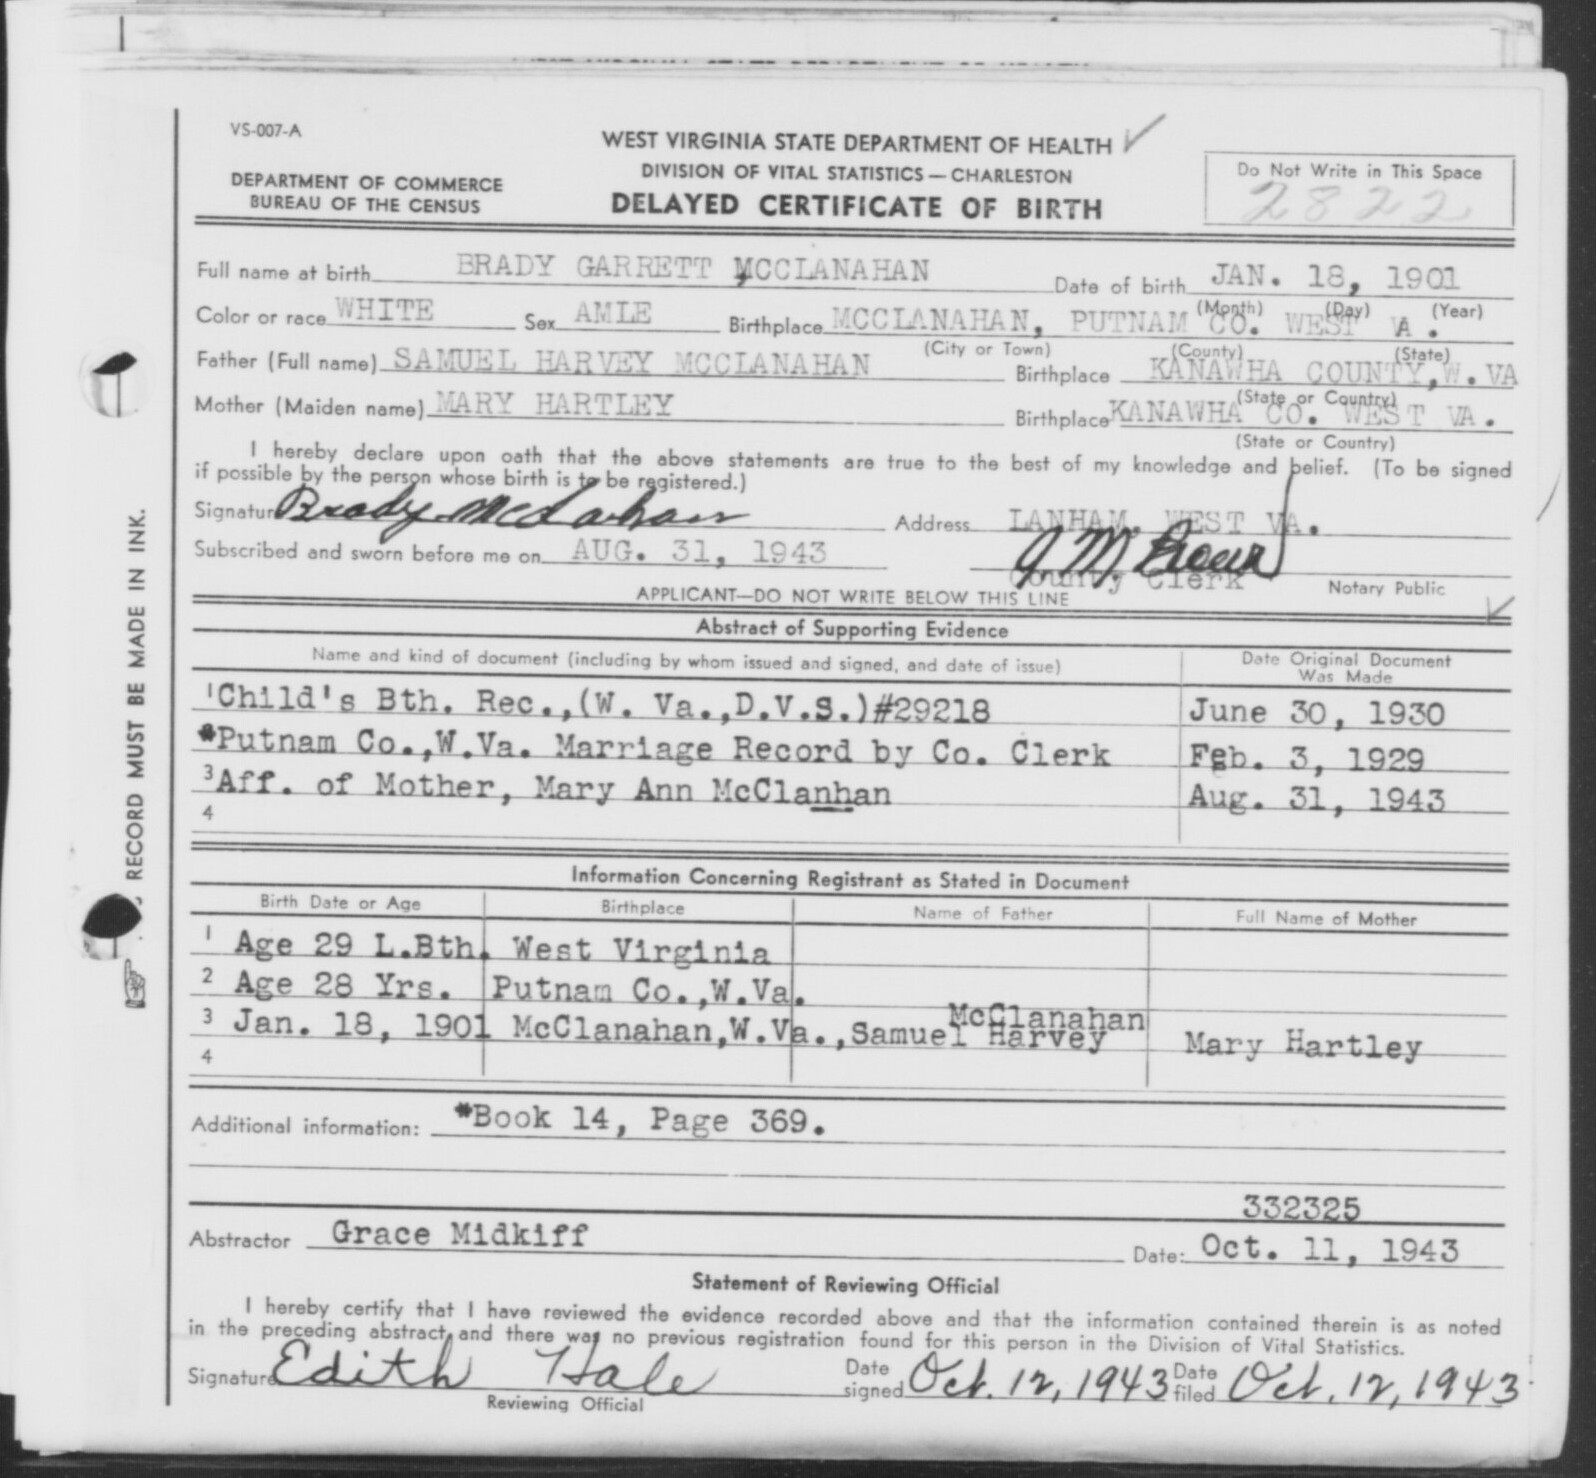 VS-007-A
WEST VIRGINIA STATE DEPARTMENT OF HEALTH
DEPARTMENT OF COMMERCE
BUREAU OF THE CENSUS
DIVISION OF VITAL STATISTICS — CHARLESTON
DELAYED CERTIFICATE OF BIRTH
Do Not Write in This Space
2822
Full name at birth BRADY GARRETT MCCLANAHAN Date of birth JAN. 18, 1901
(Month) (Day) (Year)
Color or race WHITE Sex AMLE Birthplace MCCLANAHAN, PUTNAM CO. WEST VA.
(City or Town) (County) (State)
Father (Full name) SAMUEL HARVEY MCCLANAHAN Birthplace KANAWHA COUNTY, W. VA
(State or Country)
Mother (Maiden name) MARY HARTLEY Birthplace KANAWHA CO. WEST VA.
(State or Country)
I hereby declare upon oath that the above statements are true to the best of my knowledge and belief. (To be signed
if possible by the person whose birth is to be registered.)
Signature Brady Address LANHAM, WEST VA.
Subscribed and sworn before me on AUG. 31, 1943 J M Brown
County Clerk Notary Public
APPLICANT—DO NOT WRITE BELOW THIS LINE
Abstract of Supporting Evidence
Name and kind of document (including by whom issued and signed, and date of issue) Date Original Document
Was Made
1 Child's Bth. Rec.,(W. Va.,D.V.S.)#29218 June 30, 1930
*Putnam Co.,W.Va. Marriage Record by Co. Clerk Feb. 3, 1929
3 Aff. of Mother, Mary Ann McClanhan Aug. 31, 1943
4
Information Concerning Registrant as Stated in Document
Birth Date or Age Birthplace Name of Father Full Name of Mother
1 Age 29 L.Bth. West Virginia
2 Age 28 Yrs. Putnam Co.,W.Va.
McClanahan
3 Jan. 18, 1901 McClanahan,W.Va., Samuel Harvey Mary Hartley
4
Additional information: *Book 14, Page 369.
332325
Abstractor Grace Midkiff Date: Oct. 11, 1943
Statement of Reviewing Official
I hereby certify that I have reviewed the evidence recorded above and that the information contained therein is as noted
in the preceding abstract and there was no previous registration found for this person in the Division of Vital Statistics.
Signature Edith Hale Date signed Oct. 12, 1943 Date filed Oct. 12, 1943
Reviewing Official
RECORD MUST BE MADE IN INK.